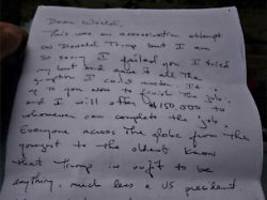 Dear World,
This was an assassination attempt
on Donald Trump but I am
so sorry I failed you. I tried
my best and gave it all the
gumption I could muster. It's
up to you now to finish the job;
and I will offer $150,000 to
whomever can complete the job.
Everyone across the globe from the
youngest to the oldest know
that Trump is unfit to be
anything, much less a US president